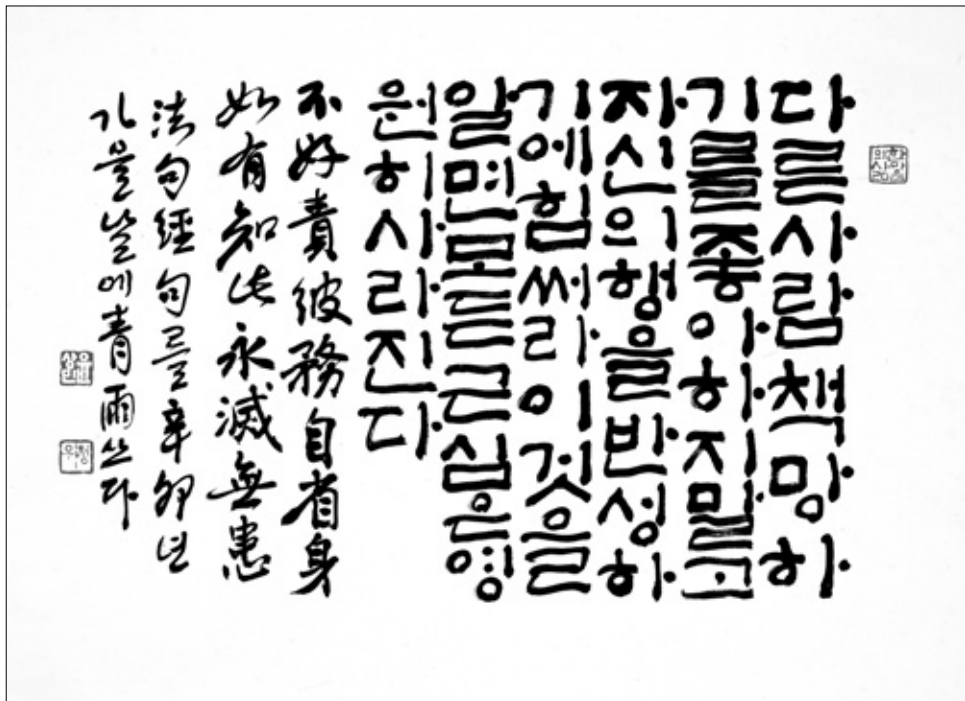 다른사람책망하
기를좋아하지말고
자신의행을반성하
기에힘써라이것을
알면모든근심은영
원히사라진다
不好責彼務自省身
如有知此永滅無患
法句經句를辛卯년
가을날에青雨쓰다